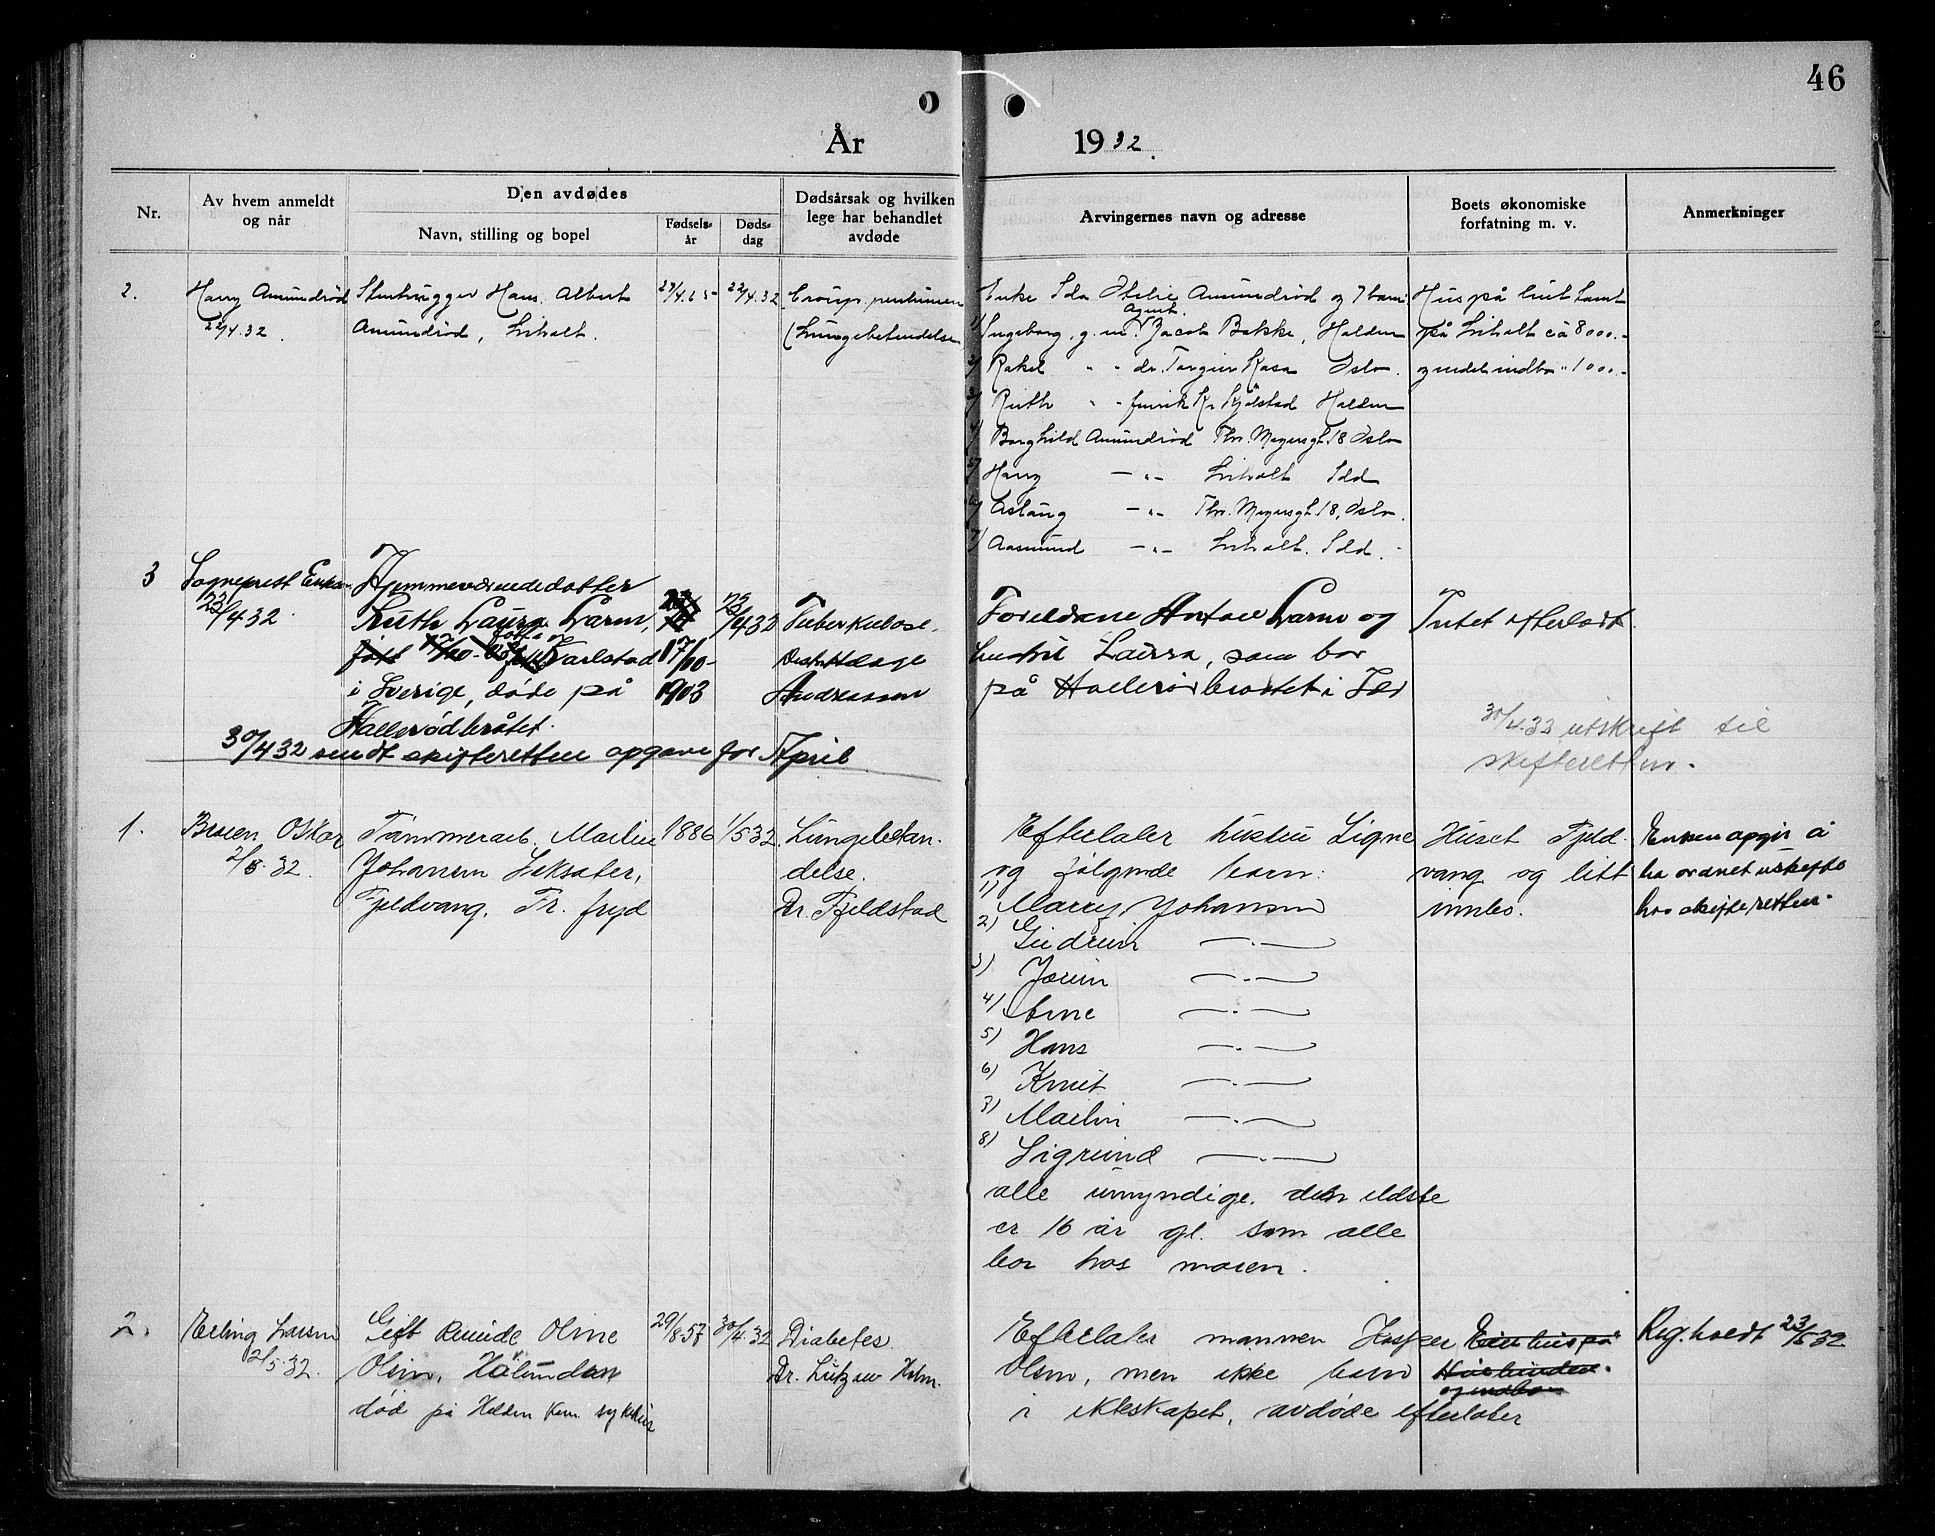 46
År 1932.
Nr.
Av hvem anmeldt
og når
Den avdødes
Navn, stilling og bopel
Fødsels-
år
Døds-
dag
Dødsårsak og hvilken
lege har behandlet
avdøde
Arvingernes navn og adresse
Boets økonomiske
forfatning m. v.
Anmerkninger
2.
Harry Amundrød
22/4.32.
Stenhugger Hans Albert
Amundrød, Liholt.
29/4.65
22/4.32
Croup. pneumoni
(Lungebetendelse
Enke Ida Otelie Amundrød og 7 barn
1) Ingeborg, g. m. Agent Jacob Bakke, Halden
2) Rakel " " dr. Torgeir Kasa Oslo.
3) Ruth " " fenrik Kr. Kjølstad Halden
4) Borghild Amundrød Thv. Meyersgt. 18 Oslo
5) Harry —"— Liholt Idd
6) Aslaug —"— Thv. Meyersgt. 18, Oslo.
7) Aasmund —"— Liholt. Idd.
Hus på
på Liholt ca 8000.-
endel indbo " 1000.-
3
Sogneprest
23/4 32.
Hjemmeværende datter
Ruth Laura Larm,
født Karlstad
i Sverige, døde på
Hallerødbråtet.
17/10-
1903
23/4 32
Tuberkulose.
Distriktslege
Andreassen
Foreldrene Anton Larm og
hustru Laura, som bor
på Hallerødbråtet i Idd
Intet efterladt.
30/4 32 sendt skifteretten opgave for April
30/4.32 utskrift til
skifteretten.
1.
Broren Oskar
2/5.32.
Tømmerarb. Martin
Johansen Isksater,
Fjeldvang, Tr. fryd
1886
1/5 32
Lungebetan-
delse.
Dr. Fjeldstad
Efterlater hustru Signe
og følgende barn:
1) Marry Johansen
2) Gudrun —"—
3) Jorun —"—
4) Arne —"—
5) Hans —"—
6) Knut —"—
7) Martin —"—
8) Sigrund —"—
alle umyndige. den eldste
er 16 år gl. som alle
bor hos moren.
Huset Fjeld-
vang og litt
innbo.
Enken opgir å
ha ordnet uskifte
hos skifteretten.
2.
Erling Larsen
2/5.32.
Gift Kvinde Oline
Olsen, Hålundan
død på Halden kom. sykehus
29/8.57
30/4.32
Diabetes.
Dr. Lützow Holm.
Efterlater mannen Kasper
Olsen, men ikke barn
i ekteskapet, avdøde efterlater
Eier hus på
og indbo
Reg. holdt 23/5 32